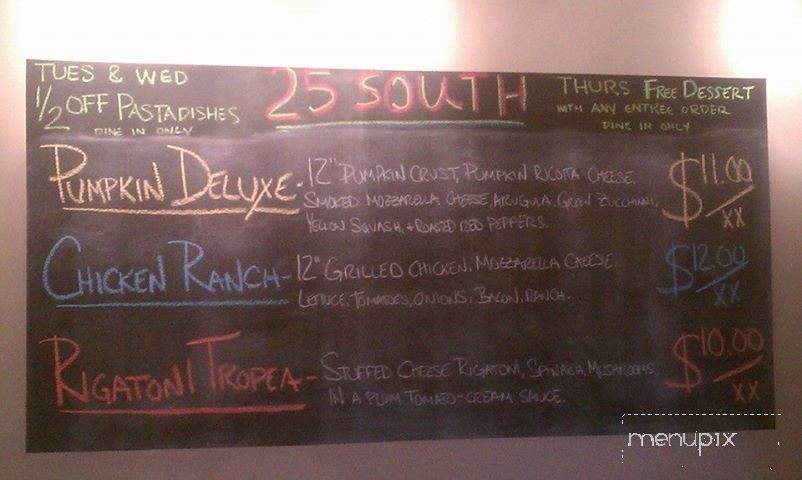 TUES & WED
1/2 OFF PASTA DISHES
DINE IN ONLY
25 SOUTH
THURS FREE DESSERT
WITH ANY ENTREE ORDER
DINE IN ONLY
PUMPKIN DELUXE - 12" PUMPKIN CRUST, PUMPKIN RICOTTA CHEESE,
SMOKED MOZZARELLA CHEESE, ARUGULA, GREEN ZUCCHINI,
YELLOW SQUASH, + ROASTED RED PEPPERS.
$11.00/XX
CHICKEN RANCH - 12" GRILLED CHICKEN, MOZZARELLA CHEESE,
LETTUCE, TOMATOES, ONIONS, BACON, RANCH.
$12.00/XX
RIGATONI TROPEA - STUFFED CHEESE RIGATONI, SPINACH, MUSHROOMS,
IN A PLUM TOMATO-CREAM SAUCE.
$10.00/XX
menupix